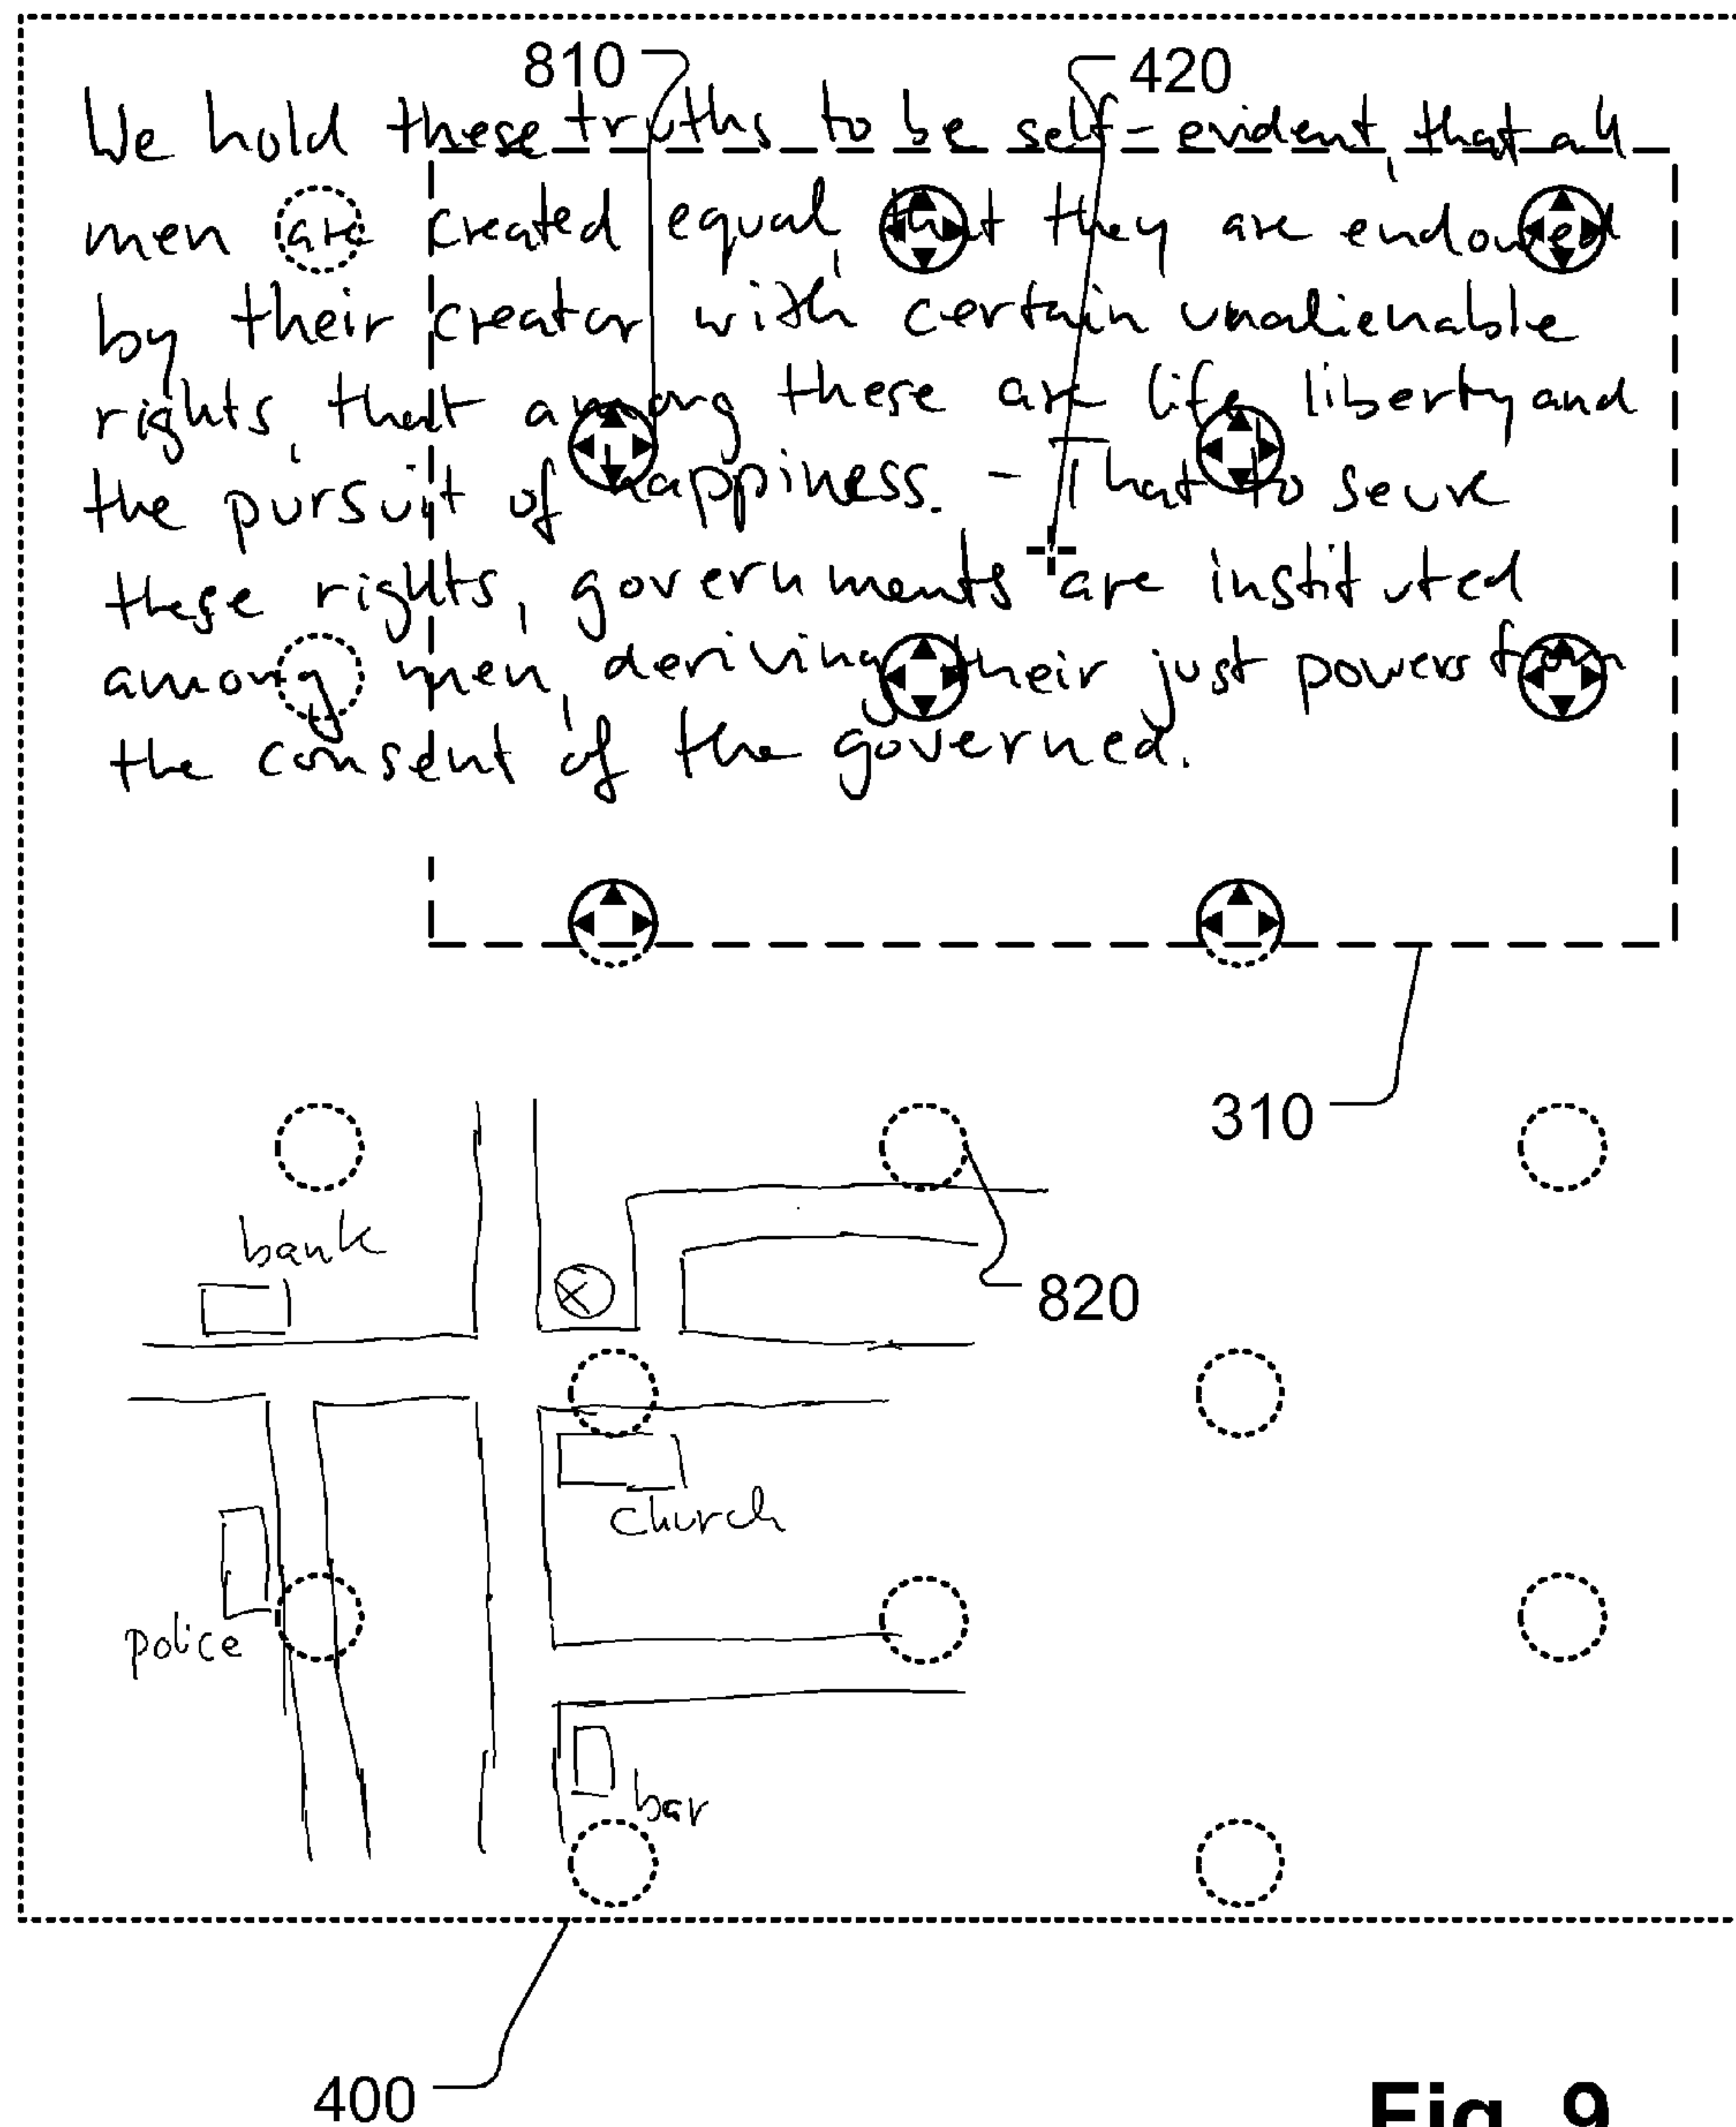 810 420
We hold these truths to be self-evident, that all
men are created equal, that they are endowed
by their creator with certain unalienable
rights, that among these are life, liberty and
the pursuit of happiness. - That to seure
these rights, governments are instituted
among men, deriving their just powers from
the consent of the governed.
310
bank
820
church
police
bar
400
Fig. 9